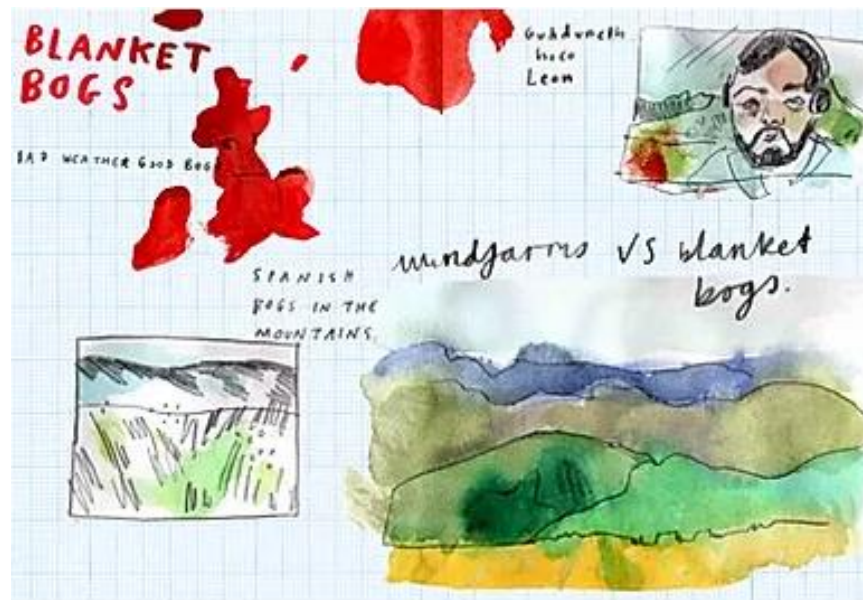 BLANKET
BOGS
BAD WEATHER GOOD BOG
Leon
SPANISH
BOGS IN THE
MOUNTAINS.
windfarms VS blanket
bogs.